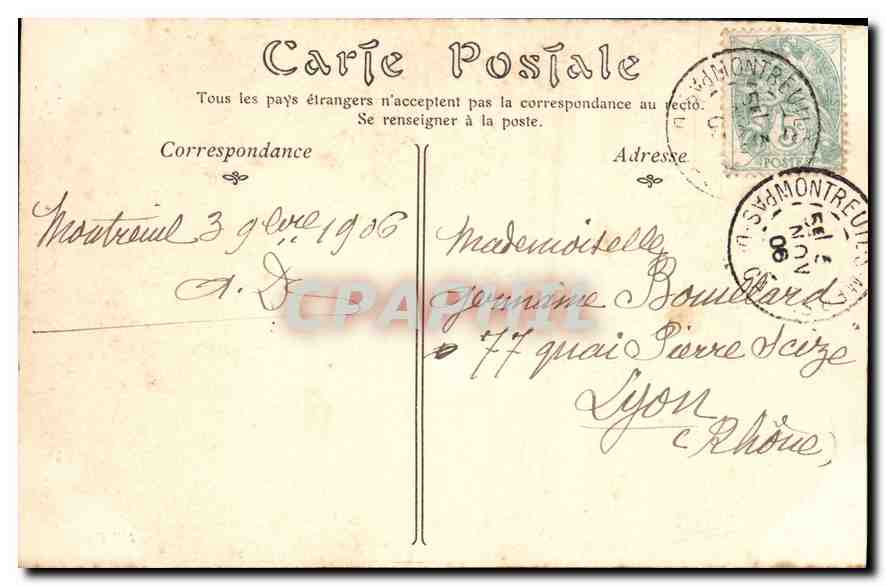 Carte Postale
Tous les pays étrangers n'acceptent pas la correspondance au recto.
Se renseigner à la poste.
Correspondance
Adresse
Montreuil 3 9bre 1906
A. D
Mademoiselle
Germaine Bouillard
77 quai Pierre Scize
Lyon
Rhône
POSTE
MONTREUIL
MONTREUIL
NOV
06
CPARTIL